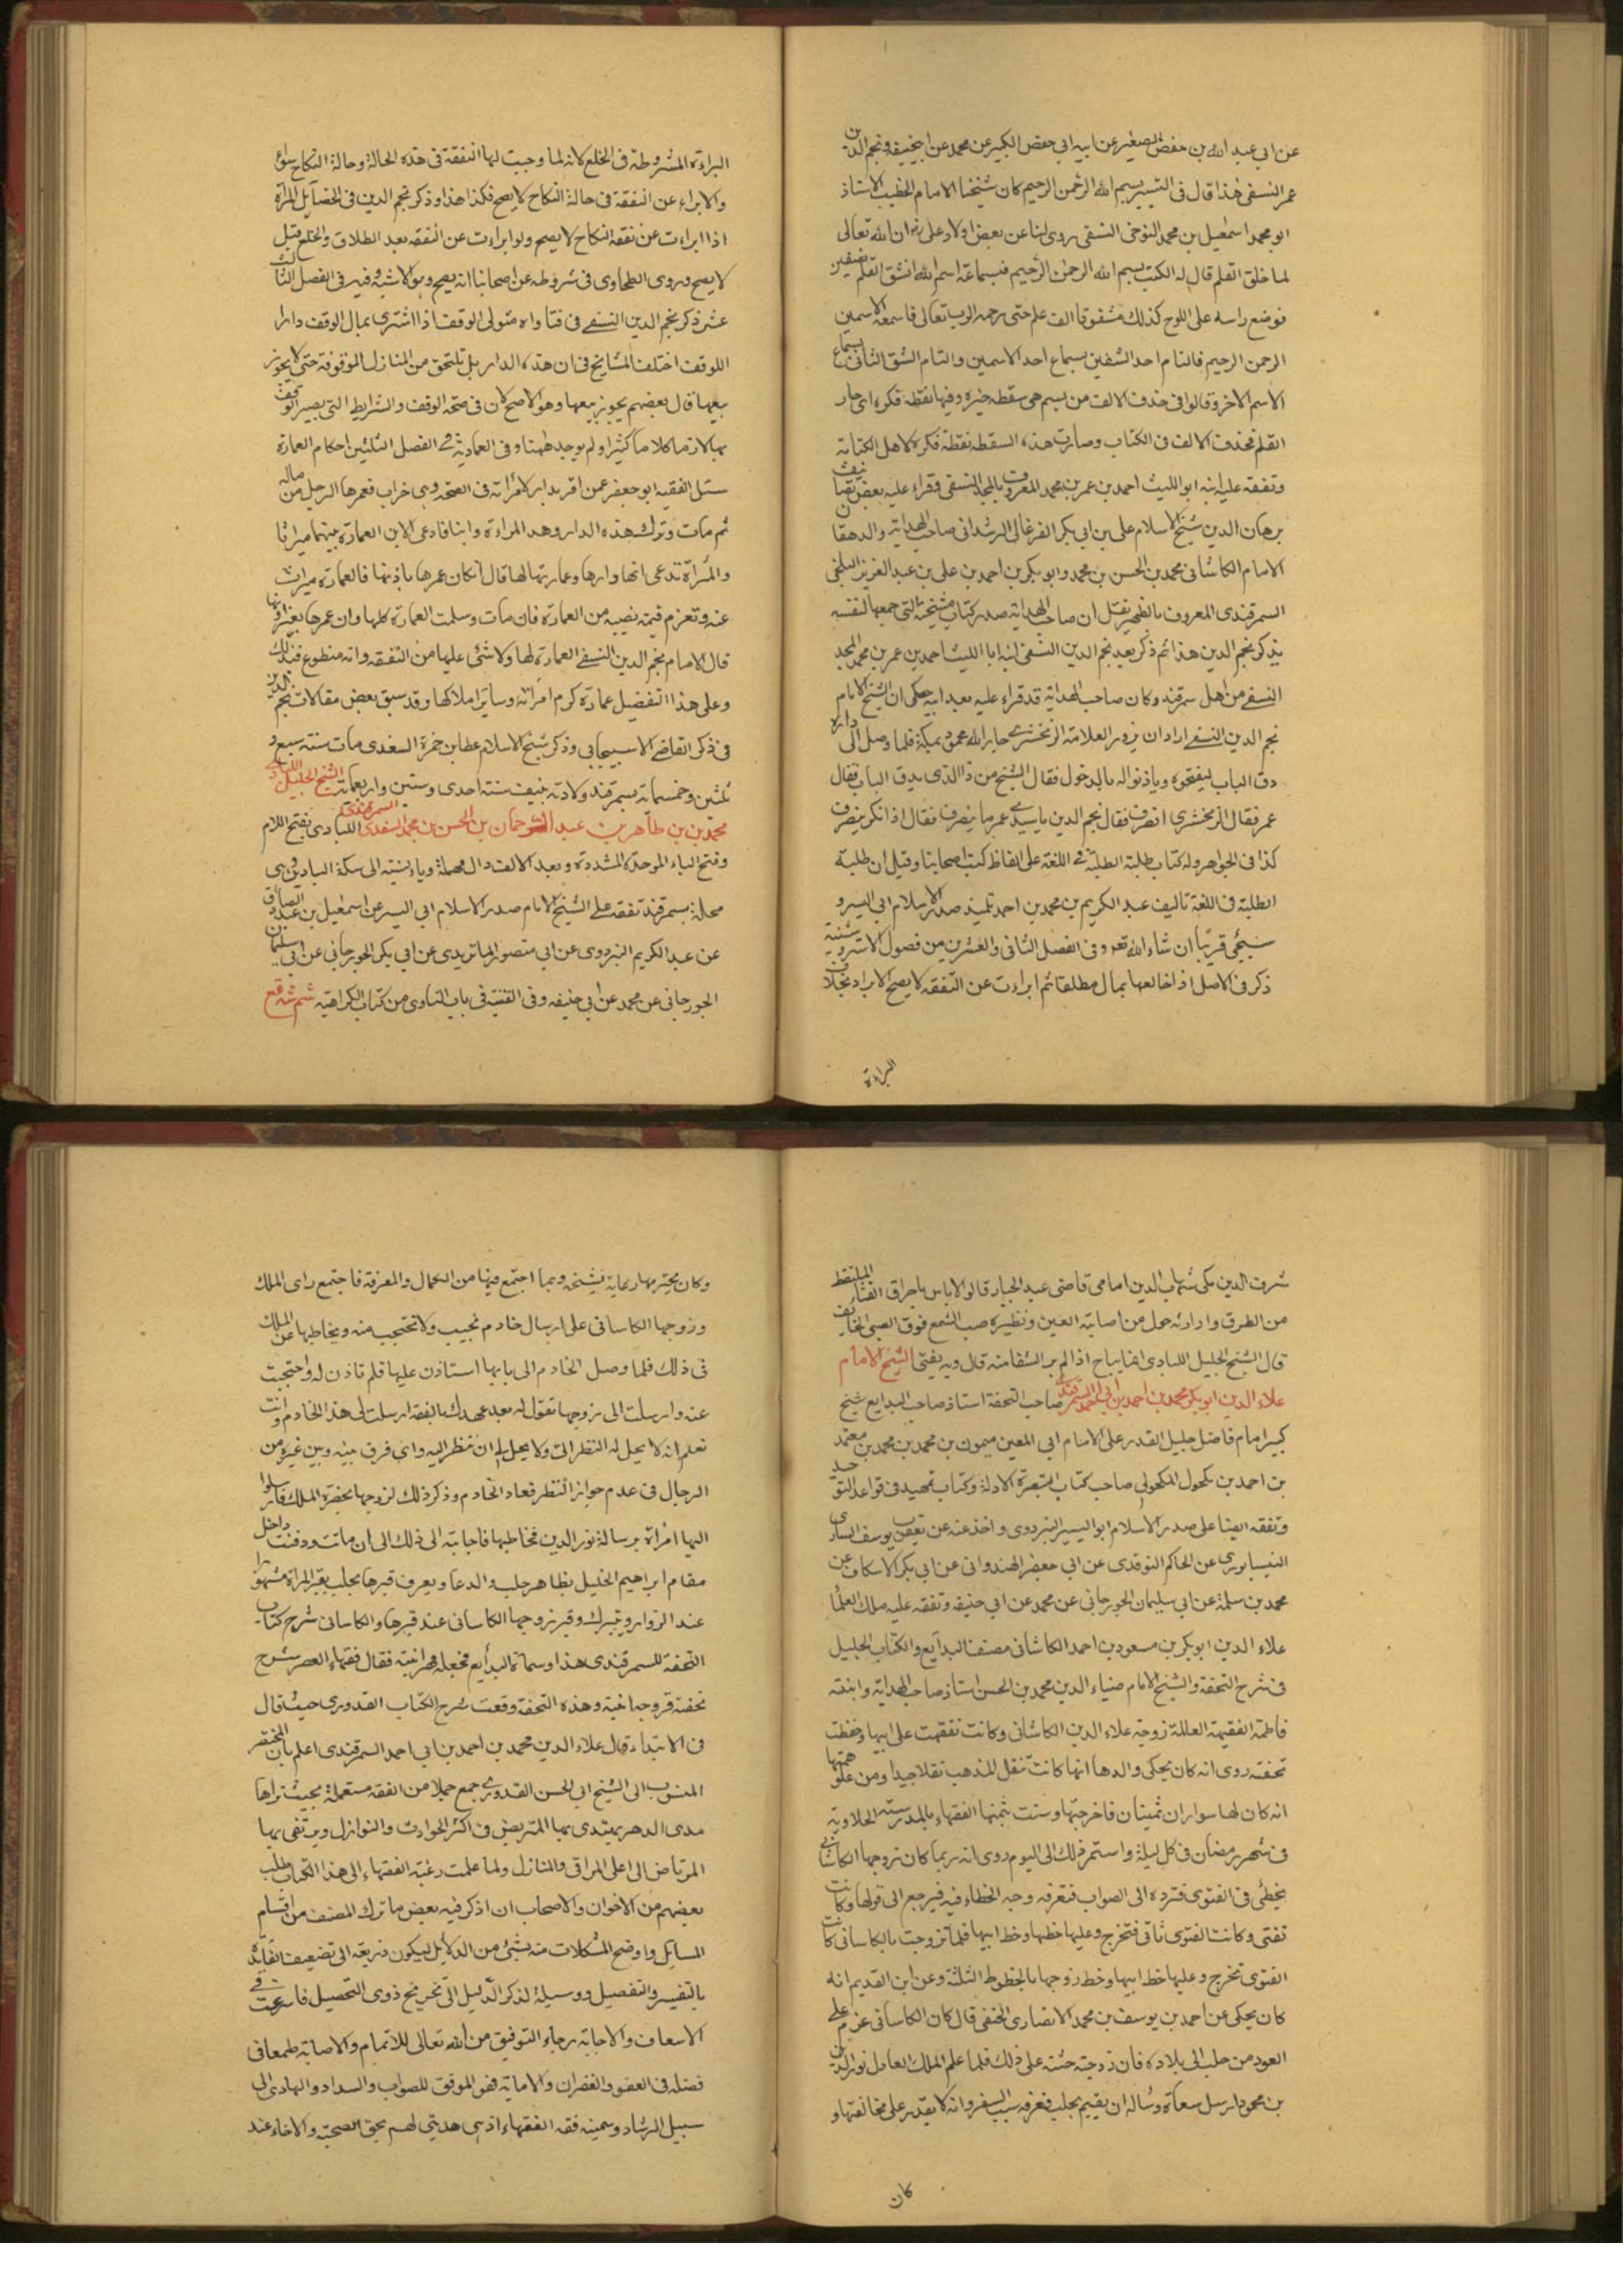 عن ابي عبد الله بن حفص الصغير عن ابيه ابي حفص الكبير عن محمد عن ابي حنيفة ونجم الدين
عمر النسفي هذا قال في التيسير بسم الله الرحمن الرحيم كان شيخنا الامام الخطيب الاستاذ
ابو محمد اسمعيل بن محمد النوحى النسفى روى لنا عن بعض اولاد على رض ان الله تعالى
لما خلق القلم قال له اكتب بسم الله الرحمن الرحيم فبسماعه اسم الله انشق القلم نصفين
فوضع راسه على اللوح كذلك مشقوقا الف علم حتى رحمه الرب تعالى فاسمعه الاسمين
الرحمن الرحيم فالتام احد الشقين بسماع احد الاسمين والتام الشق الثانى بسماع
الاسم الاخر وقالوا فى حذف الالف من بسم هى سقطه حبره وفيها نقطه فكره اى حار
القلم فحذف الالف فى الكتاب وصارت هذه السقطه نقطة فكرة لاهل الكتابة
وتفقه عليه ابنه ابو الليث احمد بن عمر بن محمد المعروف بالمجد النسفى وقراء عليه بعض تصانيف
برهان الدين شيخ الاسلام على بن ابى بكر الفرغانى الرشدانى صاحب الهداية والدهقان
الامام الكاشانى محمد بن الحسن بن محمد وابو بكر بن احمد بن على بن عبد العزيز البلخى
السمرقندى المعروف بالظهير نقل ان صاحب الهداية صدر كتاب مشيخته التى جمعها لنفسه
بذكر نجم الدين هذا ثم ذكر بعد نجم الدين النسفى ابنه ابا الليث احمد بن عمر بن محمد المجد
النسفى من اهل سمرقند وكان صاحب الهداية قد قراء عليه بعد ابيه يحكى ان الشيخ الامام
نجم الدين النسفى اراد ان يزور العلامة الزمخشرى جار الله محمود بمكة فلما وصل الى داره
دق الباب ليفتحوه وياذنوا له بالدخول فقال الشيخ من ذا الذى يدق الباب فقال
عمر فقال الزمخشرى انصرف فقال نجم الدين يا سيدى عمر ما ينصرف فقال اذا نكر ينصرف
كذا فى الجواهر وله كتاب طلبة الطلبة فى اللغة على الفاظ كتب اصحابنا وقيل ان طلبة
الطلبة فى اللغة تاليف عبد الكريم بن محمد بن احمد تلميذ صدر الاسلام ابى اليسر و
سيجئ قريبا ان شاء الله تعه وفى الفصل الثانى والعشرين من فصول الاستروشنية
ذكر فى الاصل اذا خالعها بمال مطلقا ثم ابراءت عن النفقه لا يصح الابراء بخلاف
البراءة
البراءة المشروطة فى الخلع لانه لما وجبت لها النفقة فى هذه الحالة وحالة النكاح سواء
والابراء عن النفقة فى حالة النكاح لا يصح فكذا هذا وذكر نجم الدين فى الخصايل المراة
اذا ابراءت عن نفقة النكاح لا يصح ولو ابراءت عن النفقه بعد الطلاق والخلع قيل
لا يصح وروى الطحاوى فى شروطه عن اصحابنا انه يصح وهو الاشبه وفيه فى الفصل الثالث
عشر ذكر نجم الدين النسفى فى فتاواه متولى الوقف اذا اشترى بمال الوقف دارا
اللوقف اختلف المشايخ فى ان هذه الدار بل تلتحق من المنازل الموقوفة حتى لا يجوز
بيعها قال بعضهم يجوز بيعها وهو الاصح لان فى صحة الوقف والشرايط التى يصير الوقف
بها لازما كلاما كثيرا ولم يوجد ههنا وفى العمادية فى الفصل الثلثين احكام العمارة
سئل الفقيه ابو جعفر عمن اقر بدار لامراته فى الصحة وهى خراب فعمرها الرجل من ماله
ثم مات وترك هذه الدار وهذ المراءة وابنا فادعى الابن العمارة بينهما ميراثا
والمراة تدعى انها دارها وعمارتها لها قال ان كان عمرها باذنها فالعمارة ميراث
عنه وتغرم قيمة نصيبه من العمارة فان مات وسلمت العمارة كلها وان عمرها بغير اذنها
قال الامام نجم الدين النسفى العمارة لها ولا شئ عليها من النفقه وانه متطوع فى ذلك
وعلى هذا التفضيل عمارة كرم امراته وساير املاكها وقد سبق بعض مقالات نجم الدين
فى ذكر القاضى الاسبيجابى وذكر شيخ الاسلام عطا بن حمزة السغدى مات سنة سبع و
ثلثين وخمسماية بسمرقند ولادته بنيف سنة احدى وستين واربعمائة الشيخ الجليل اللبادى
محمد بن بن طاهر بن عبد الرحمان بن الحسن بن محمد السغدى السمرقندى اللبادى بفتح اللام
وفتح الباء الموحدة المشددة وبعد الالف دال مهملة وياء نسبته الى سكة اللبادين وهى
محلة بسمرقند تفقه على الشيخ الامام صدر الاسلام ابى اليسر عن اسمعيل بن عبد الصادق
عن عبد الكريم البزدوى عن ابى منصور الماتريدى عن ابى بكر الجورجانى عن ابى سليمان
الجورجانى عن محمد عن ابي حنيفه وفى القنية فى باب التداوى من كتاب الكراهية شم شه قع
شرف الدين مكى شهاب الدين امامى قاضى عبد الجبار قالوا لا باس باحراق الفتات الملتقط
من الطرق وادارته حول من اصابته العين ونظيره صب الشمع فوق الصبى الخايف
قال الشيخ الجليل اللبادى انما يباح اذا لم ير الشفا منه قال وبه يفتى الشيخ الامام
علاء الدين ابو بكر محمد بن احمد بن ابى احمد السمرقندى صاحب التحفة استاذ صاحب البدايع شيخ
كبير امام فاضل جليل القدر على الامام ابى المعين ميمون بن محمد بن محمد بن معتمد
بن احمد بن مكحول المكحولى صاحب كتاب التبصرة الادلة وكتاب تمهيد فى قواعد التوحيد
وتفقه ايضا على صدر الاسلام ابو اليسير البزدوى واخذ عنه عن يعقوب يوسف السيارى
النيسابورى عن الحاكم النوقدى عن ابى جعفر الهندوانى عن ابى بكر الاسكاف عن
محمد بن سلمة عن ابى سليمان الجورجانى عن محمد عن ابى حنيفه وتفقه عليه ملك العلما
علاء الدين ابو بكر بن مسعود بن احمد الكاشانى مصنف البدايع والكتاب الجليل
فى شرح التحفة والشيخ الامام ضياء الدين محمد بن الحسن استاذ صاحب الهداية وابنته
فاطمة الفقيهة العالمة زوجة علاء الدين الكاشانى وكانت تفقهت على ابيها وحفظت
تحفته روى انه كان يحكى والدها انها كانت تنقل المذهب نقلا جيدا ومن علو همتها
انه كان لها سواران ثمينان فاخرجتها وسنت بثمنها الفقهاء بالمدرسة الحلاوية
فى شهر رمضان فى كل ليلة واستمر ذلك الى اليوم روى انه ربما كان زوجها الكاشانى
يخطئ فى الفتوى فترده الى الصواب فتعرفه وجه الخطاء فيه فيرجع الى قولها وكانت
تفتى وكانت الفتوى تاتى فتخرج وعليها خطها وخط ابيها فلما تزوجت بالكاسانى كانت
الفتوى تخرج وعليها خط ابيها وخط زوجها بالخطوط الثلثة وعن ابن القديم انه
كان يحكى عن احمد بن يوسف بن محمد الانصارى الحنفى قال كان الكاسانى عزم على
العود من حلب الى بلاده فان زوجته حثته على ذلك فلما علم الملك العادل نور الدين
بن محمود ارسل سعاة وساله ان يقيم بحلب فعرفه سبب السفر وانه لا يقدر على مخالفتها و
كان
وكان محترمها رعاية لشيخه وبما اجتمع فيها من الكمال والمعرفة فاجتمع راى الملك
وزوجها الكاسانى على ارسال خادم نجيب ولا تحتجب منه ويخاطبها عن الملك
فى ذلك فلما وصل الخادم الى بابها استاذن عليها فلم تاذن له واحتجبت
عنه وارسلت الى زوجها تقول له بعد عهدك بالفقه ارسلت لى هذا الخادم وانت
تعلم انه لا يحل له النظر الى ولا يحل لى ان تنظر اليه واى فرق بينه وبين غيره من
الرجال فى عدم جواز النظر فعاد الخادم وذكر ذلك لزوجها بحضرة الملك فارسلوا
اليها امراة برسالة نور الدين فخاطبها فاجابته الى ذلك الى ان ماتت ودفنت داخل
مقام ابراهيم الخليل بظاهر حلب والدعا ويعرف قبرها بحلب بقبر المراة مشهورا
عند الزوار ويتبرك وقبر زوجها الكاسانى عند قبرها والكاسانى شرح كتاب
التحفة للسمرقندى هذا وسماه البدايع فجعله مهر ابنته فقال فقهاء العصر شرح
تحفته فزوجه ابنته وهذه التحفة وقعت شرح الكتاب القدورى حيث قال
فى الابتداء قال علاء الدين محمد بن احمد بن ابى احمد السمرقندى اعلم بان المختصر
المنسوب الى الشيخ ابى الحسن القدورى جمع جملا من الفقه مستعملة بحيث تراها
مدى الدهر يهتدى بها المتربص فى اكثر الحوادث والنوازل ويرتقى بها
المرتاض الى اعلى المراقى والمنازل ولما علمت رغبة الفقهاء الى هذا الكتاب طلب
بعضهم من الاخوان والاصحاب ان اذكر فيه بعض ما ترك المصنف من اقسام
المسايل واوضح المشكلات منه بشئ من الدلايل ليكون ذريعة الى تضعيف الفايدة
بالتقسير والتفصيل ووسيلة لذكر الدليل الى تخريج ذوى التحصيل فاسرعت فى
الاسعاف والاجابة رجاء التوفيق من الله تعالى للاتمام والاصابة طمعا فى
فضله فى العفو والغفران والامانة فهو الموفق للصواب والسداد والهادى الى
سبيل الرشاد وسميته فقه الفقهاء اذ هى هديتى لهم بحق الصحبة والاخاء عند